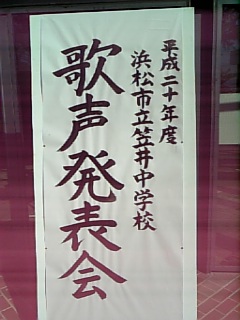 平成二十年度
浜松市立笠井中学校
歌声発表会